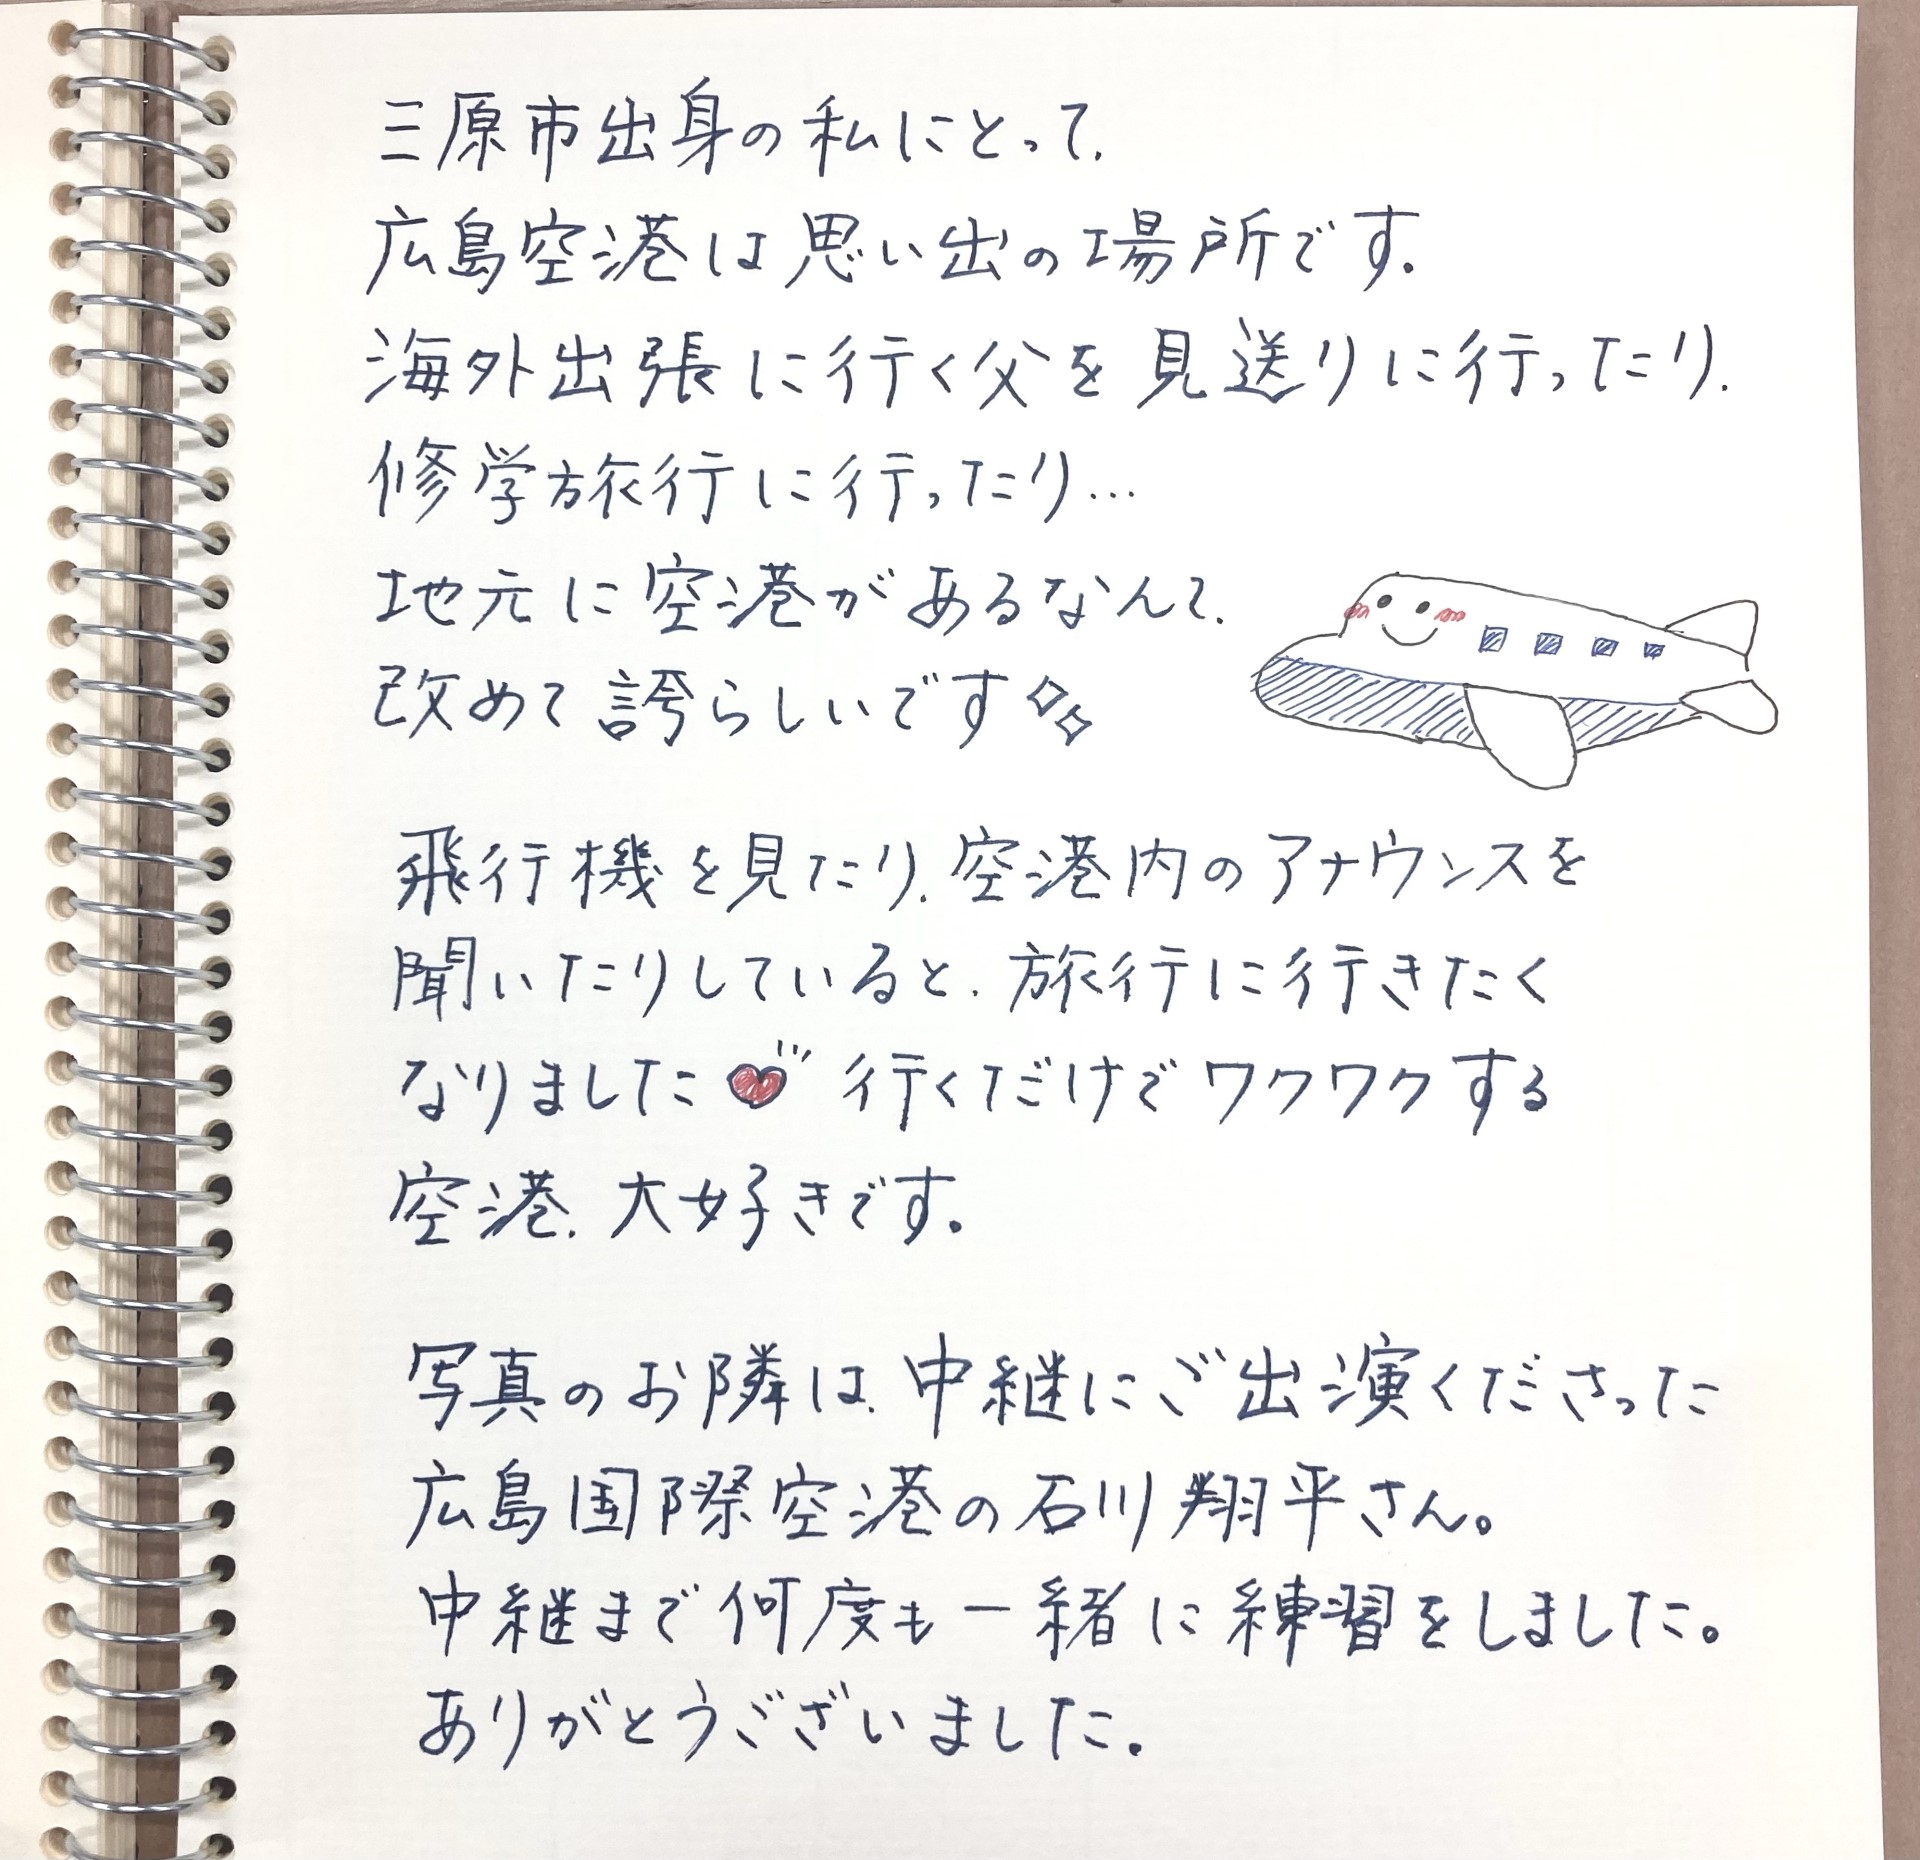 三原市出身の私にとって、
広島空港は思い出の場所です。
海外出張に行く父を見送りに行ったり、
修学旅行に行ったり…
地元に空港があるなんて、
改めて誇らしいです
飛行機を見たり、空港内のアナウンスを
聞いたりしていると、旅行に行きたく
なりました 行くだけでワクワクする
空港、大好きです。
写真のお隣は、中継にご出演くださった
広島国際空港の石川翔平さん。
中継まで何度も一緒に練習をしました。
ありがとうございました。